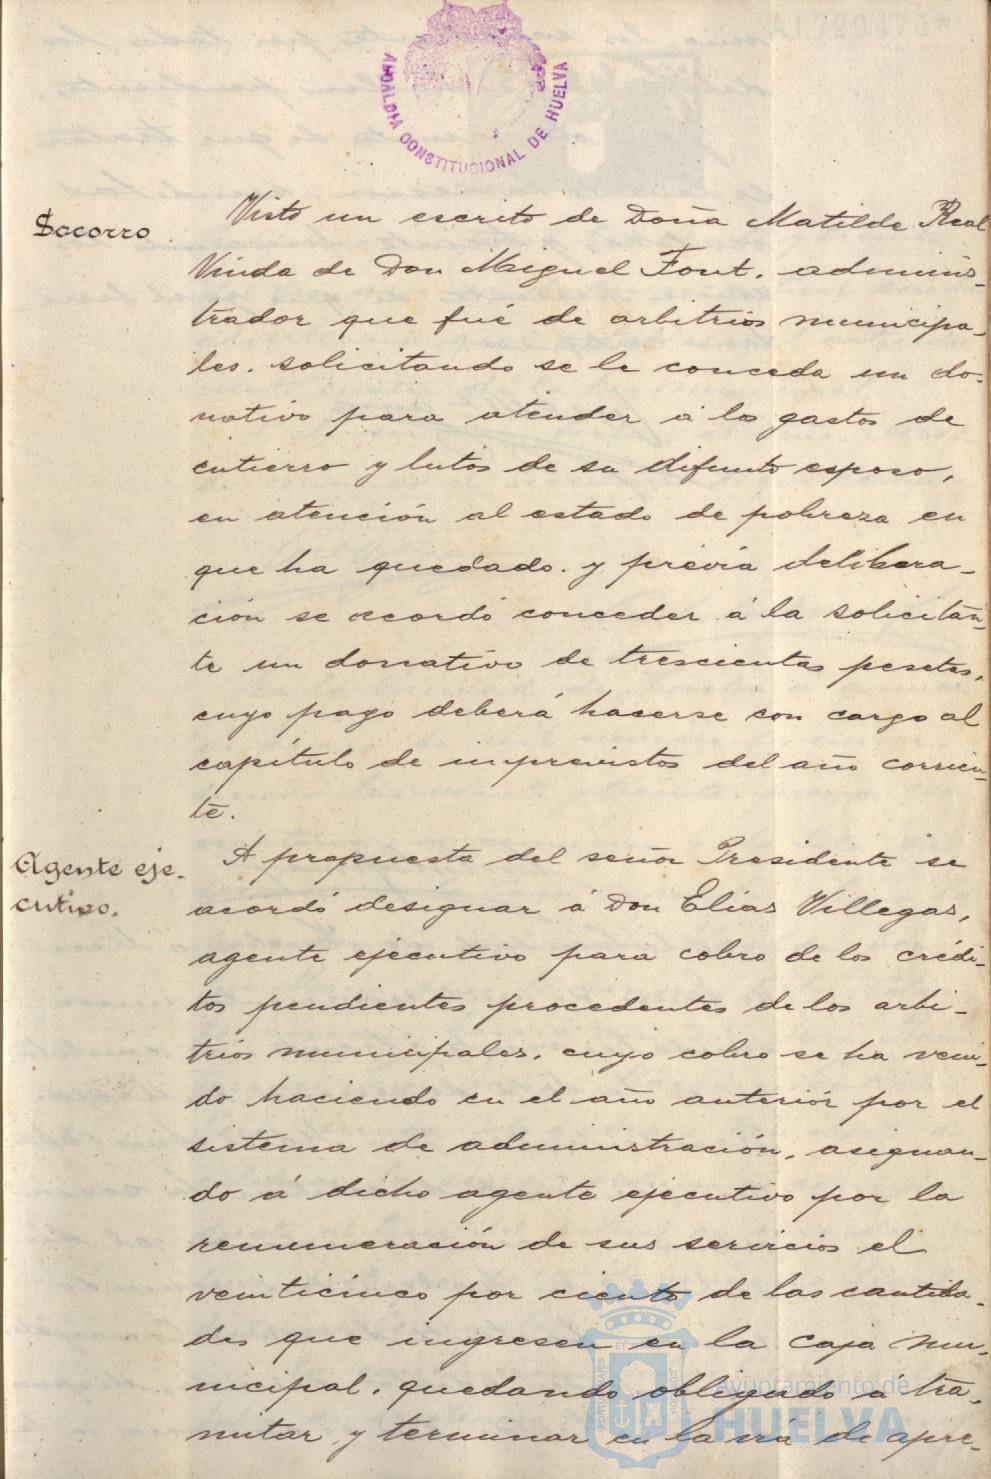 ALCALDIA CONSTITUCIONAL DE HUELVA
Socorro
Visto un escrito de Doña Matilde Real
Viuda de Don Miguel Font, adminis-
trador que fué de arbitrios municipa-
les, solicitando se le conceda un do-
nativo para atender á los gastos de
entierro y lutos de su difunto esposo,
en atención al estado de pobreza en
que ha quedado, y previa delibera-
ción se acordó conceder á la solicitan-
te un donativo de trescientas pesetas,
cuyo pago deberá hacerse con cargo al
capítulo de imprevistos del año corrien-
te.
Agente eje-
cutivo.
A propuesta del señor Presidente se
acordó designar á Don Elias Villegas,
agente ejecutivo para cobro de los crédi-
tos pendientes procedentes de los arbi-
trios municipales, cuyo cobro se ha veni-
do haciendo en el año anterior por el
sistema de administración, asignan-
do á dicho agente ejecutivo por la
remuneración de sus servicios el
veinticinco por ciento de las cantida-
des que ingresen en la caja mu-
nicipal, quedando obligado á tra-
mitar y terminar en la vía de apre-
Ayuntamiento de
HUELVA